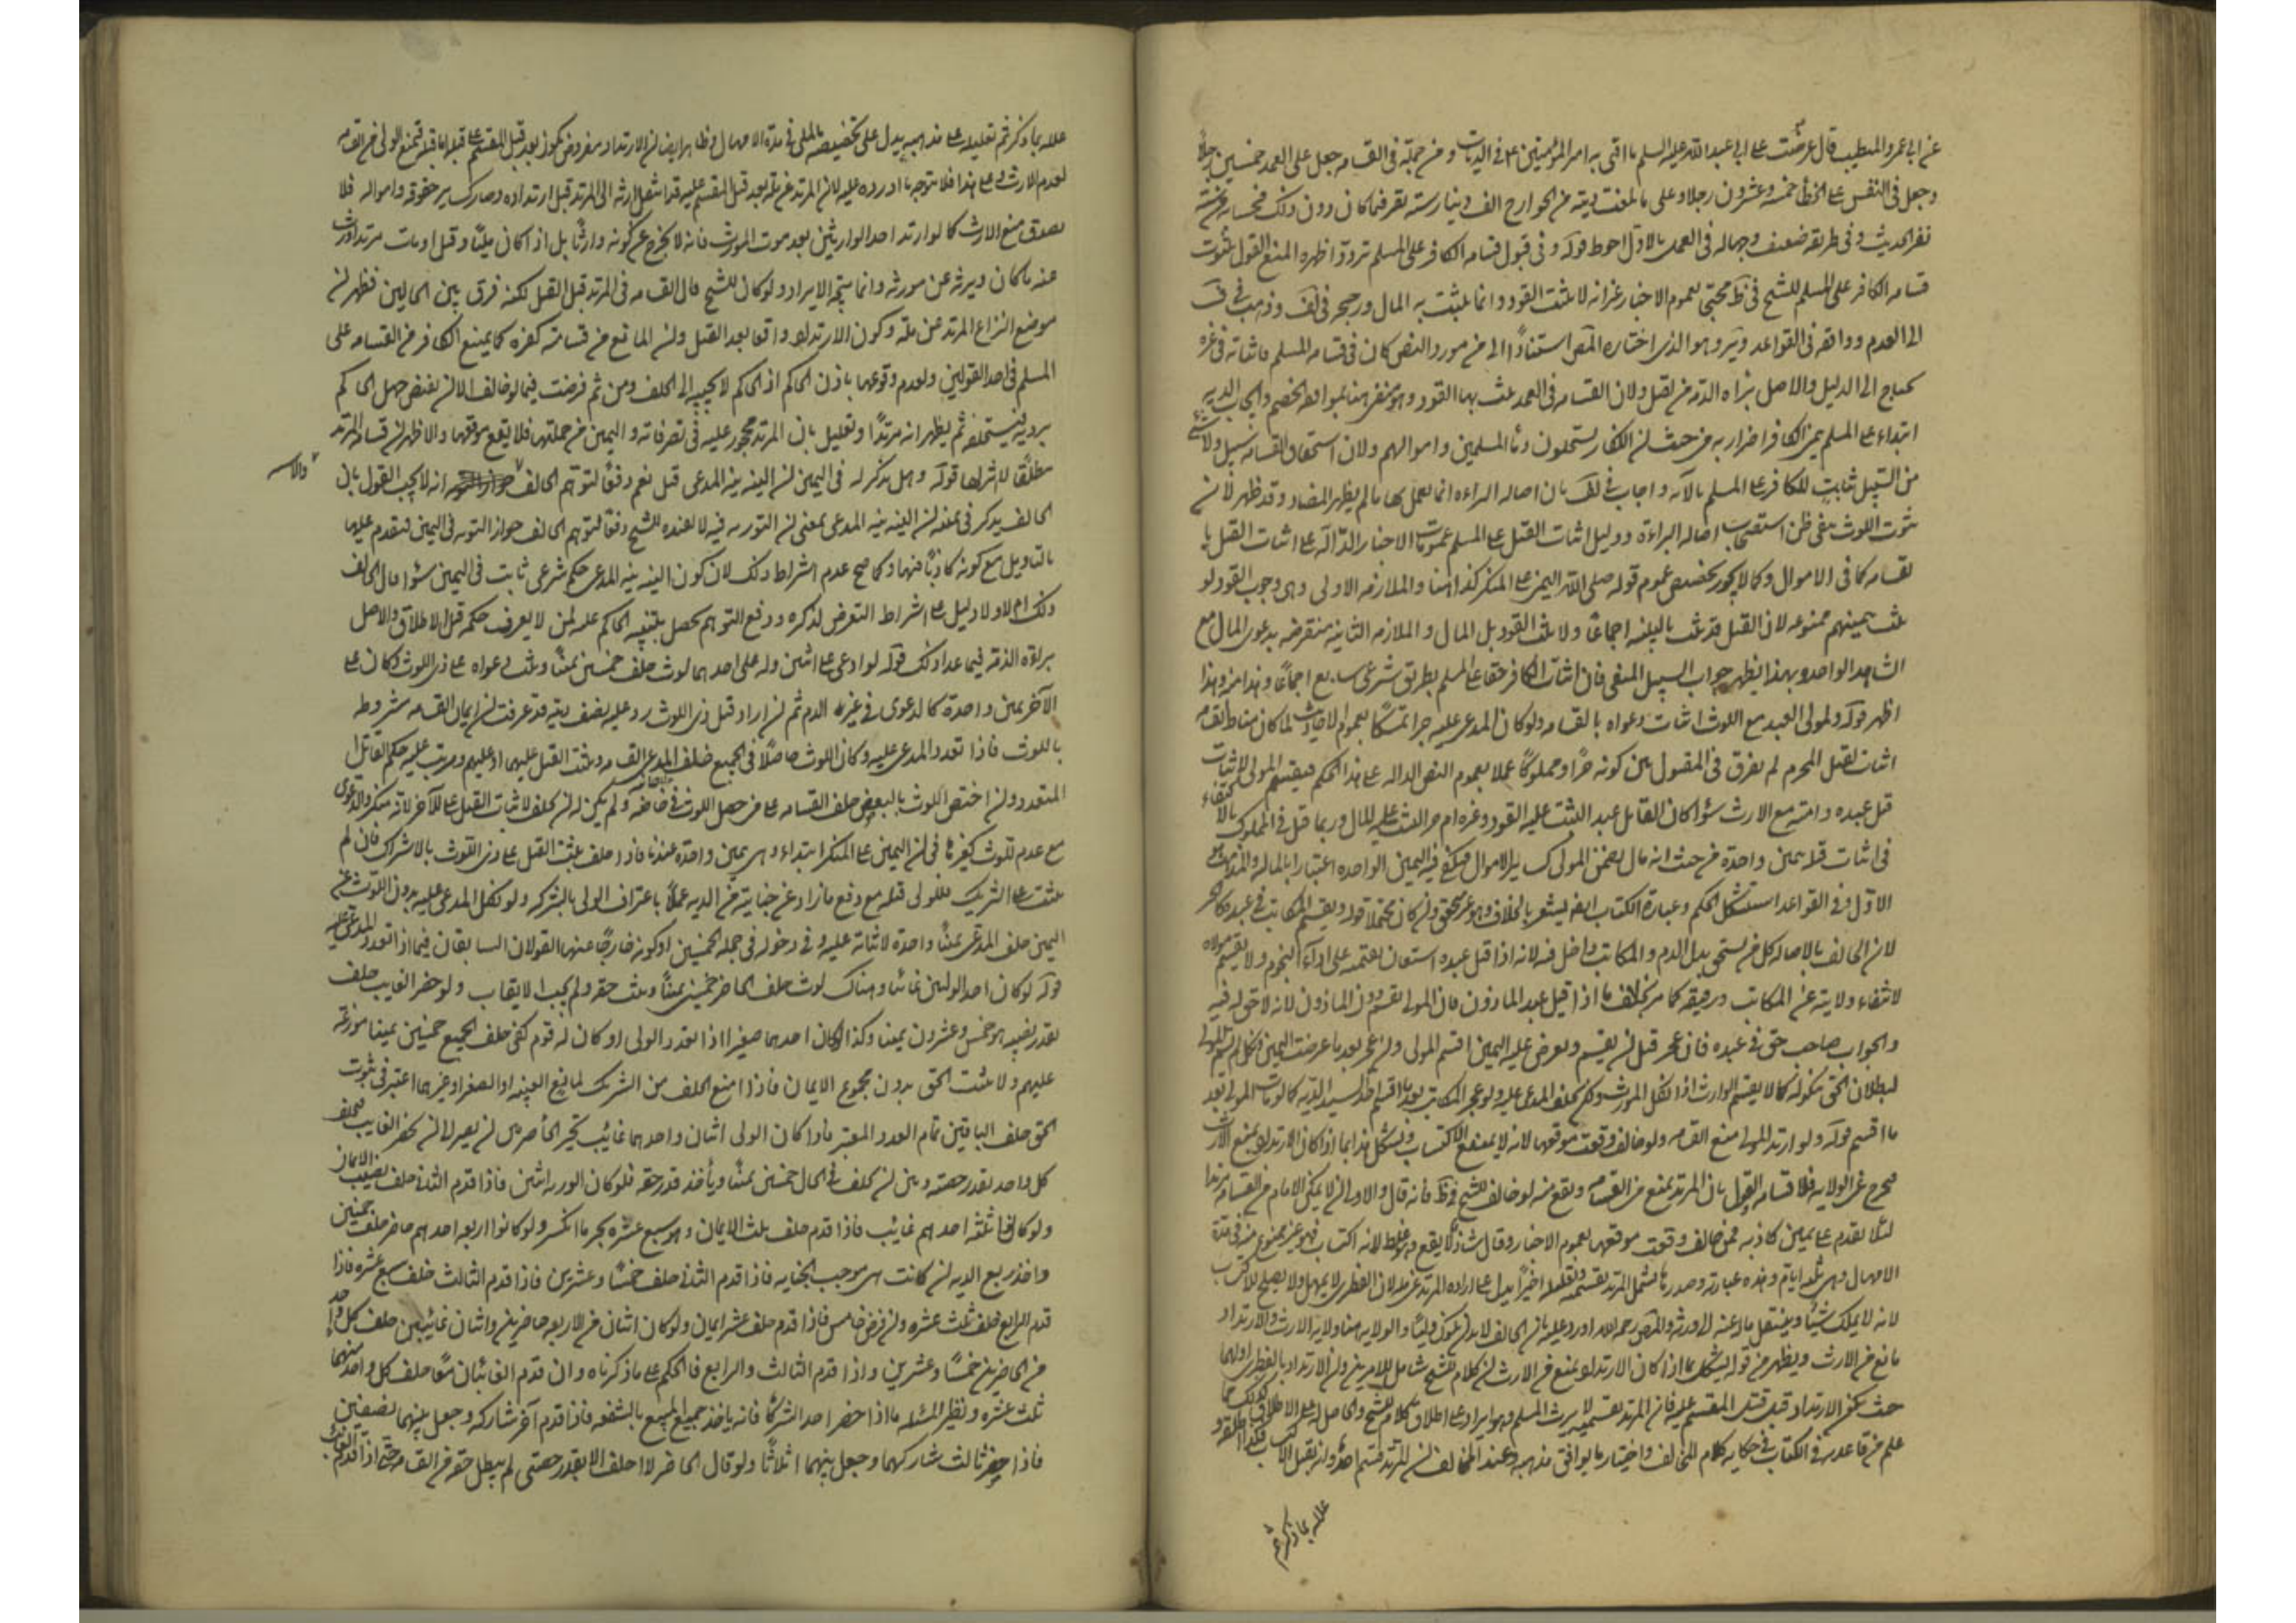 عن ابي عمرو المتطبب قال عرضت على ابي عبد الله عليه السلم ما افتى به امير المؤمنين ع في الديات و من جملته في القسامه جعل على العمد خمسين رجلا
وجعل في النفس على الخطأ خمسة وعشرون رجلا وعلى ما بلغت ديته من الجوارح الف دينار ستة نفر فما كان دون ذلك فبحسابه من ستة
نفر الحديث و في طريقه ضعف وجهاله في العمل بالاول احوط قوله و في قبول قسامه الكافر على المسلم تردد اظهره المنع القول بثبوت
قسامه الكافر على المسلم للشيخ في ط محتجا بعموم الاخبار غير انه لا يثبت القود وانما يثبت به المال ورجحه في لف وذهب في ف
الى العدم ووافقه في القواعد و ير وهو الذي اختاره المص استنادا الى من مورد النص كان في قسامه المسلم فاثباته في غيره
يحتاج الى الدليل والاصل براه الذمه من لقتل ولان القسامه في العمد يثبت بها القود وهو منفي هنا بموافقة الخصم وايجاب الديه
ابتداء على المسلم بيمين الكافر اضرار به من حيث ان الكفار يستحلون دماء المسلمين واموالهم ولان استحقاق القسامه سبيل ولا شئ
من السبيل ثابت للكافر على المسلم بالآيه واجاب في لف بان اصاله البراءه انما يعمل بها ما لم يظهر المضاد وقد ظهر لان
ثبوت اللوث ينفى ظن استصحاب اصاله البراءة ودليل اثبات القتل على المسلم عمومات الاخبار الدالة على اثبات القتل با
لقسامه كما في الاموال وكما لا يجوز تخصيص عموم قوله صلى الله اليمين على المنكر كذا هنا والملازمه الاولى وهي وجوب القود لو
يثبت بيمينهم ممنوعه لان القتل قد يثبت بالبينه اجماعا ولا يثبت القود بل المال والملازمه الثانيه منتقضه بدعوى المال مع
الشاهد الواحد وبهذا يظهر جواب السبيل المنفى فان اثبات الكافر حقا على المسلم بطريق شرعى سايغ اجماعا وهذا منه وهذا
اظهر قوله ولمولى العبد مع اللوث اثبات دعواه بالقسامه ولو كان المدعى عليه حرا تمسكا بعموم الاحاديث لما كان مناط القسامه
اثبات لقتل المحرم لم يفرق في المقتول بين كونه حرا ومملوكا عملا بعموم النص الداله على هذا الحكم فيقسم المولى لاثبات
قتل عبده وامته مع الارث سواء كان القاتل عبدا ليثبت عليه القود وغيره ام حرا ليثبت عليه المال وربما قيل في المملوك بالاكتفاء
في اثبات قتله بيمين واحدة من حيث انه مال يضمن للمولى كساير الاموال فيكفي فيه اليمين الواحده اعتبارا بالماليه والمذهب هو
الاول وفي القواعد استشكل الحكم وعبارة الكتاب ايضا يشعر بالخلاف وهو غير متحقق وان كان محتملا قوله ويقسم المكاتب في عبده كالحر
لان الحالف بالاصاله كل من يستحق بدل الدم والمكاتب داخل فيه لانه اذا قتل عبده استعان بقيمته على اداء النجوم ولا يقسم مولاه
لانتفاء ولايته عن المكاتب ورقيقه كما مر بخلاف ما اذا قتل عبد الماذون فان المولى يقسم دون الماذون لانه لا حق له فيه
والجواب صاحب حق في عبده فان عجز قبل ان يقسم ويعرض عليه اليمين اقسم المولى وان عجز بعد ما عرضت اليمين ونكل لم يقسم المولى
لبطلان الحق بنكوله كما لا يقسم الوارث اذا نكل المورث ولكن يحلف المدعى عليه ولو عجز المكاتب بعد ما اقسم اخذ السيد الديه كما لو مات المولى بعد
ما اقسم قوله ولو ارتد الولى منع القسامه ولو خالف وقعت موقعها لانه لا يمنع الاكتساب ويشكل هذا بما اذا كان الارتداد يمنع الارث
فيخرج عن الولايه فلا قسامه القول بان المرتد يمنع من القسامه ويقع منه لو خالف للشيخ في ط فانه قال والاولى ان لا يمكن الامام من القسامه مرتدا
لئلا يقدم على يمين كاذبه فمن خالف وقعت موقعها لعموم الاخبار وقال شاذ لا يقع وهو غلط لانه اكتساب فهو غير ممنوع منه في مدة
الامهال وهى ثلثه ايام وهذه عبارته وصدرها يشمل المرتد بقسميه وتعليله اخيرا يدل على اراده المرتد عن مله لان الفطرى لا يمهل ولا يصلح للاكتساب
لانه لا يملك شيئا وينتقل ماله عنه الى ورثته والمص رحمه الله اورد عليه بان الحالف لابد ان يكون وليا والولايه هنا ولاية الارث والارتداد
مانع من الارث ويظهر من قوله يشكل بما اذا كان الارتداد يمنع من الارث ان كلام الشيخ شامل للامرين وان الارتداد بالفطرى اولهما
حيث يكون الارتداد قبل قتل المقسم عليه فان المرتد بقسميه لا يرث المسلم وهو ايراد على اطلاق كلام الشيخ والحاصل له على الاطلاق
علم من قاعدته في الكتاب في حكايه كلام المخالف واختيار ما يوافق مذهبه وعند المخالف ان المرتد قسم واحد وان يقبل
علله بما ذكر ثم
علله بما ذكر ثم تعليله على مذهبه يدل على تخصيصه بالملى في مدة الامهال وظاهر ايضا ان الارتداد مفروض كونه بعد قتل المقسم عليه قبل اما قبله فيمنع الولى من القسامه
لعدم الارث وعلى هذا فلا يتوجه ما اورده عليه لان المرتد عن مله بعد قتل المقسم عليه قد انتقل ارثه الى المرتد قبل ارتداده وصار كساير حقوقه وامواله فلا
يصدق منع الارث كما لو ارتد احد الوارثين بعد موت المورث فانه لا يخرج عن كونه وارثا بل اذا كان مليا وقتل او مات مرتدا ورث
عنه ما كان ويرثه عن مورثه وانما يتجه الايراد ولو كان للشيخ قال القسامه في المرتد قبل القتل لكنه فرق بين الحالين فظهر ان
موضع النزاع المرتد عن ملة وكون الارتداد واقعا بعد القتل وان المانع من قسامته كفره كما يمنع الكافر من القسامه على
المسلم في احد القولين ولعدم وقوعها باذن الحاكم اذ الحاكم لا يجيبه الى الحلف ومن ثم فرضت فيما لو خالف الا ان يفرض جهل الحاكم
بردته فيستحلفه ثم يظهر انه مرتدا وتعليل بان المرتد محجور عليه في تصرفاته واليمين من جملتها فلا يقع موقعها والاظهر ان قسامه المرتد
مطلقا لا اثر لها قوله وهل يذكر له في اليمين ان النيه نيه المدعى قيل نعم دفعا لتوهم الحالف والاشبه انه لا يجب القول بان
الحالف يذكر في يمينه ان النيه نيه المدعى بمعنى ان التوريه فيه لا يفيده للشيخ دفعا لتوهم الحالف جواز التوريه في اليمين فيقدم عليها
بالتاويل مع كونه كاذبا فيها وكما صح عدم اشتراط ذلك لان كون النيه نيه المدعى حكم شرعى ثابت في اليمين سواء قال الحالف
ذلك ام لا ولا دليل على اشتراط التعرض لذكره ودفع التوهم يحصل بتنبيه الحاكم عليه لمن لا يعرف حكمه قبل الاطلاق والاصل
براءة الذمه فيما عدا ذلك قوله لو ادعى على اثنين وله على احدهما لوث حلف خمسين يمينا ويثبت دعواه على ذى اللوث وكان على
الآخر يمين واحدة كالدعوى في غير الدم ثم ان اراد قتل ذى اللوث رد عليه نصف ديته قد عرفت ان ايمان القسامه مشروطه
باللوث فاذا تعدد المدعى عليه وكان اللوث حاصلا في الجميع حلف المدعى القسامه ويثبت القتل عليهما او عليهم ويرتب عليه حكم القاتل
المتعدد وان اختص اللوث بالبعض حلف القسامه على من حصل اللوث في جانبه خاصه ولم يكن له ان يحلف لاثبات القتل على الآخر لانه منكر والدعوى
مع عدم للوث كغيرها في ان اليمين على المنكر ابتداء وهى يمين واحدة عندنا فاذا حلف يثبت القتل على ذى اللوث بالاشتراك فان لم
يثبت على الشريك فللولى قتله مع دفع ما زاد عن جنايته من الديه عملا باعتراف الولى بالشركه ولو نكل المدعى عليه بدون اللوث عن
اليمين حلف المدعى يمينا واحدة لاثباته عليه وفي دخوله في جمله الخمسين او كونه خارجا عنها القولان السابقان فيما اذا تعدد المدعى عليه
قوله لو كان احد الوليين غائبا وهناك لوث حلف الحاضر خمسين يمينا ويثبت حقه ولم يجب الارتقاب ولو حضر الغايب حلف
بقدر نصيبه وهو خمس وعشرون يمينا وكذا لو كان احدهما صغيرا اذا تعدد الولى او كان له قوم كفى حلف الجميع خمسين يمينا موزعة
عليهم ولا يثبت الحق بدون مجموع الايمان فاذا امتنع الحلف من الشريك لمانع الغيبه او الصغر او غيرهما اعتبر في ثبوت
الحق حلف الباقين تمام العدد المعتبر فاذا كان الولى اثنان واحدهما غائب تخير الحاضر بين ان يصبر الى ان يحضر الغايب فيحلف
كل واحد بقدر حصته وبين ان يحلف في الحال خمسين يمينا ويأخذ قدر حقه فلو كان الورثه اثنين فاذا قدم الثانى حلف نصف الايمان
ولو كانوا ثلثه احدهم غايب فاذا قدم حلف ثلث الايمان وهو سبع عشره بجبر ما انكسر ولو كانوا اربعه احدهم حاضر حلف خمسين
واخذ ربع الديه ان كانت هى موجب الجنايه فاذا قدم الثانى حلف خمسا وعشرين فاذا قدم الثالث حلف سبع عشره فاذا
قدم الرابع حلف ثلث عشره وان فرض خامس فاذا قدم حلف عشر ايمان ولو كان اثنان من الاربعه حاضرين واثنان غائبين حلف كل واحد
من الحاضرين خمسا وعشرين واذا قدم الثالث والرابع فالحكم على ما ذكرناه وان قدم الغائبان معا حلف كل واحد منهما
ثلث عشره ونظير المسئله ما اذا حضر احد الشركاء فانه ياخذ جميع المبيع بالشفعه فاذا قدم آخر شاركه وجعل بينهما نصفين
فاذا حضر ثالث شاركهما وجعل بينهما اثلاثا ولو قال الحاضر لا احلف الا بقدر حصتى لم يبطل حقه من القسامه حتى اذا قدم الغائب